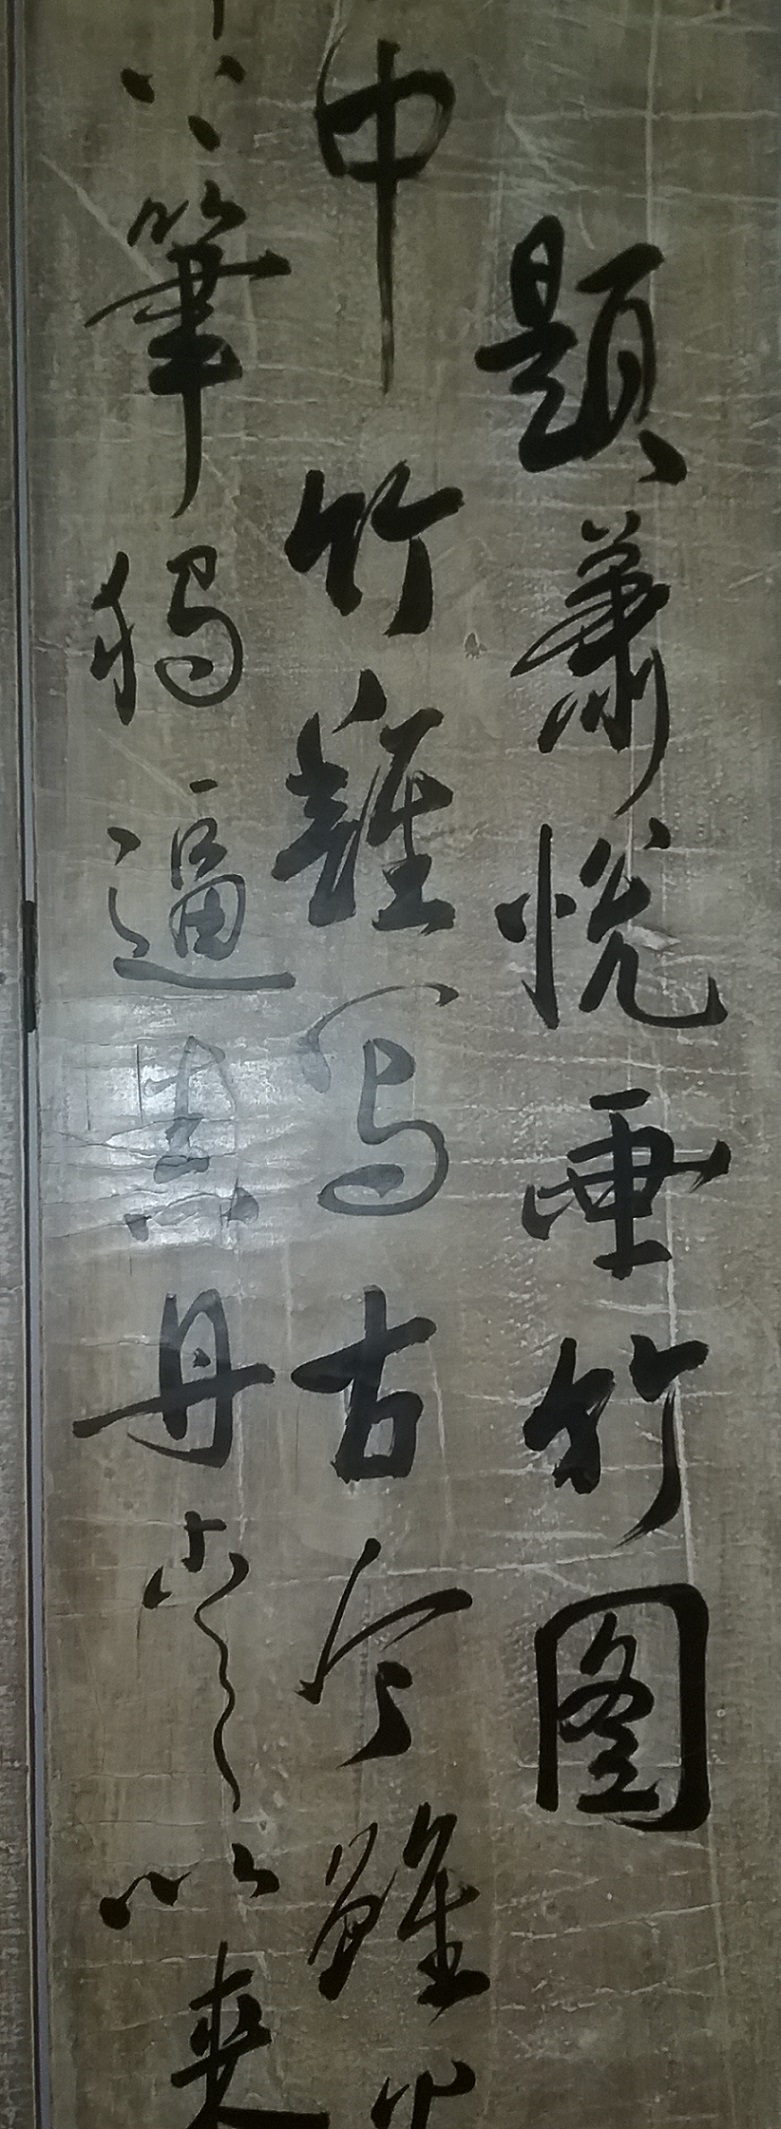 題蕭悅畫竹圖
中竹難寫古今雖
下筆獨逼真丹青以來